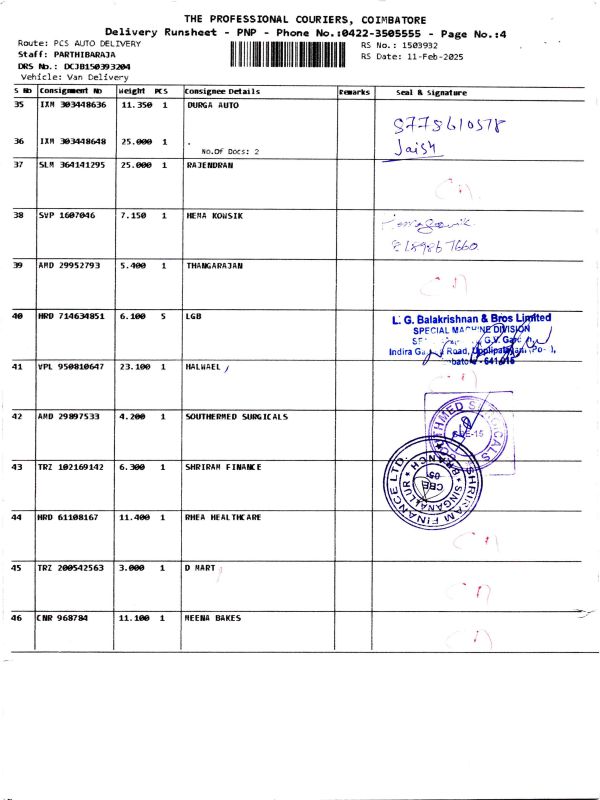 THE PROFESSIONAL COURIERS, COIMBATORE
Delivery Runsheet - PNP - Phone No.:0422-3505555 - Page No.:4
Route: PCS AUTO DELIVERY
RS No. : 1503932
Staff: PARTHIBARAJA
RS Date: 11-Feb-2025
DRS No.: DCJB150393204
Vehicle: Van Delivery
S No Consignment No Weight PCS Consignee Details Remarks Seal & Signature
35 IXM 303448636 11.350 1 DURGA AUTO
Jaish
36 IXM 303448648 25.000 1 .
No.Of Docs: 2
37 SLM 364141295 25.000 1 RAJENDRAN
38 SVP 1607046 7.150 1 HEMA KOWSIK
39 AMD 29952793 5.400 1 THANGARAJAN
40 HRD 714634851 6.100 5 LGB
L. G. Balakrishnan & Bros Limited
SPECIAL MACHINE DIVISION
Indira Road,
41 VPL 950810647 23.100 1 HALWAEL
42 AMD 29897533 4.200 1 SOUTHERMED SURGICALS
43 TRZ 102169142 6.300 1 SHRIRAM FINANCE
SHRIRAM FINANCE LTD.
SINGANALLUR BRANCH
CBE
44 HRD 61108167 11.400 1 RHEA HEALTHCARE
45 TRZ 200542563 3.000 1 D MART
46 CNR 968784 11.100 1 MEENA BAKES